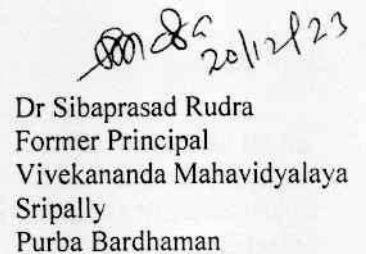 20/12/23
Dr Sibaprasad Rudra
Former Principal
Vivekananda Mahavidyalaya
Sripally
Purba Bardhaman